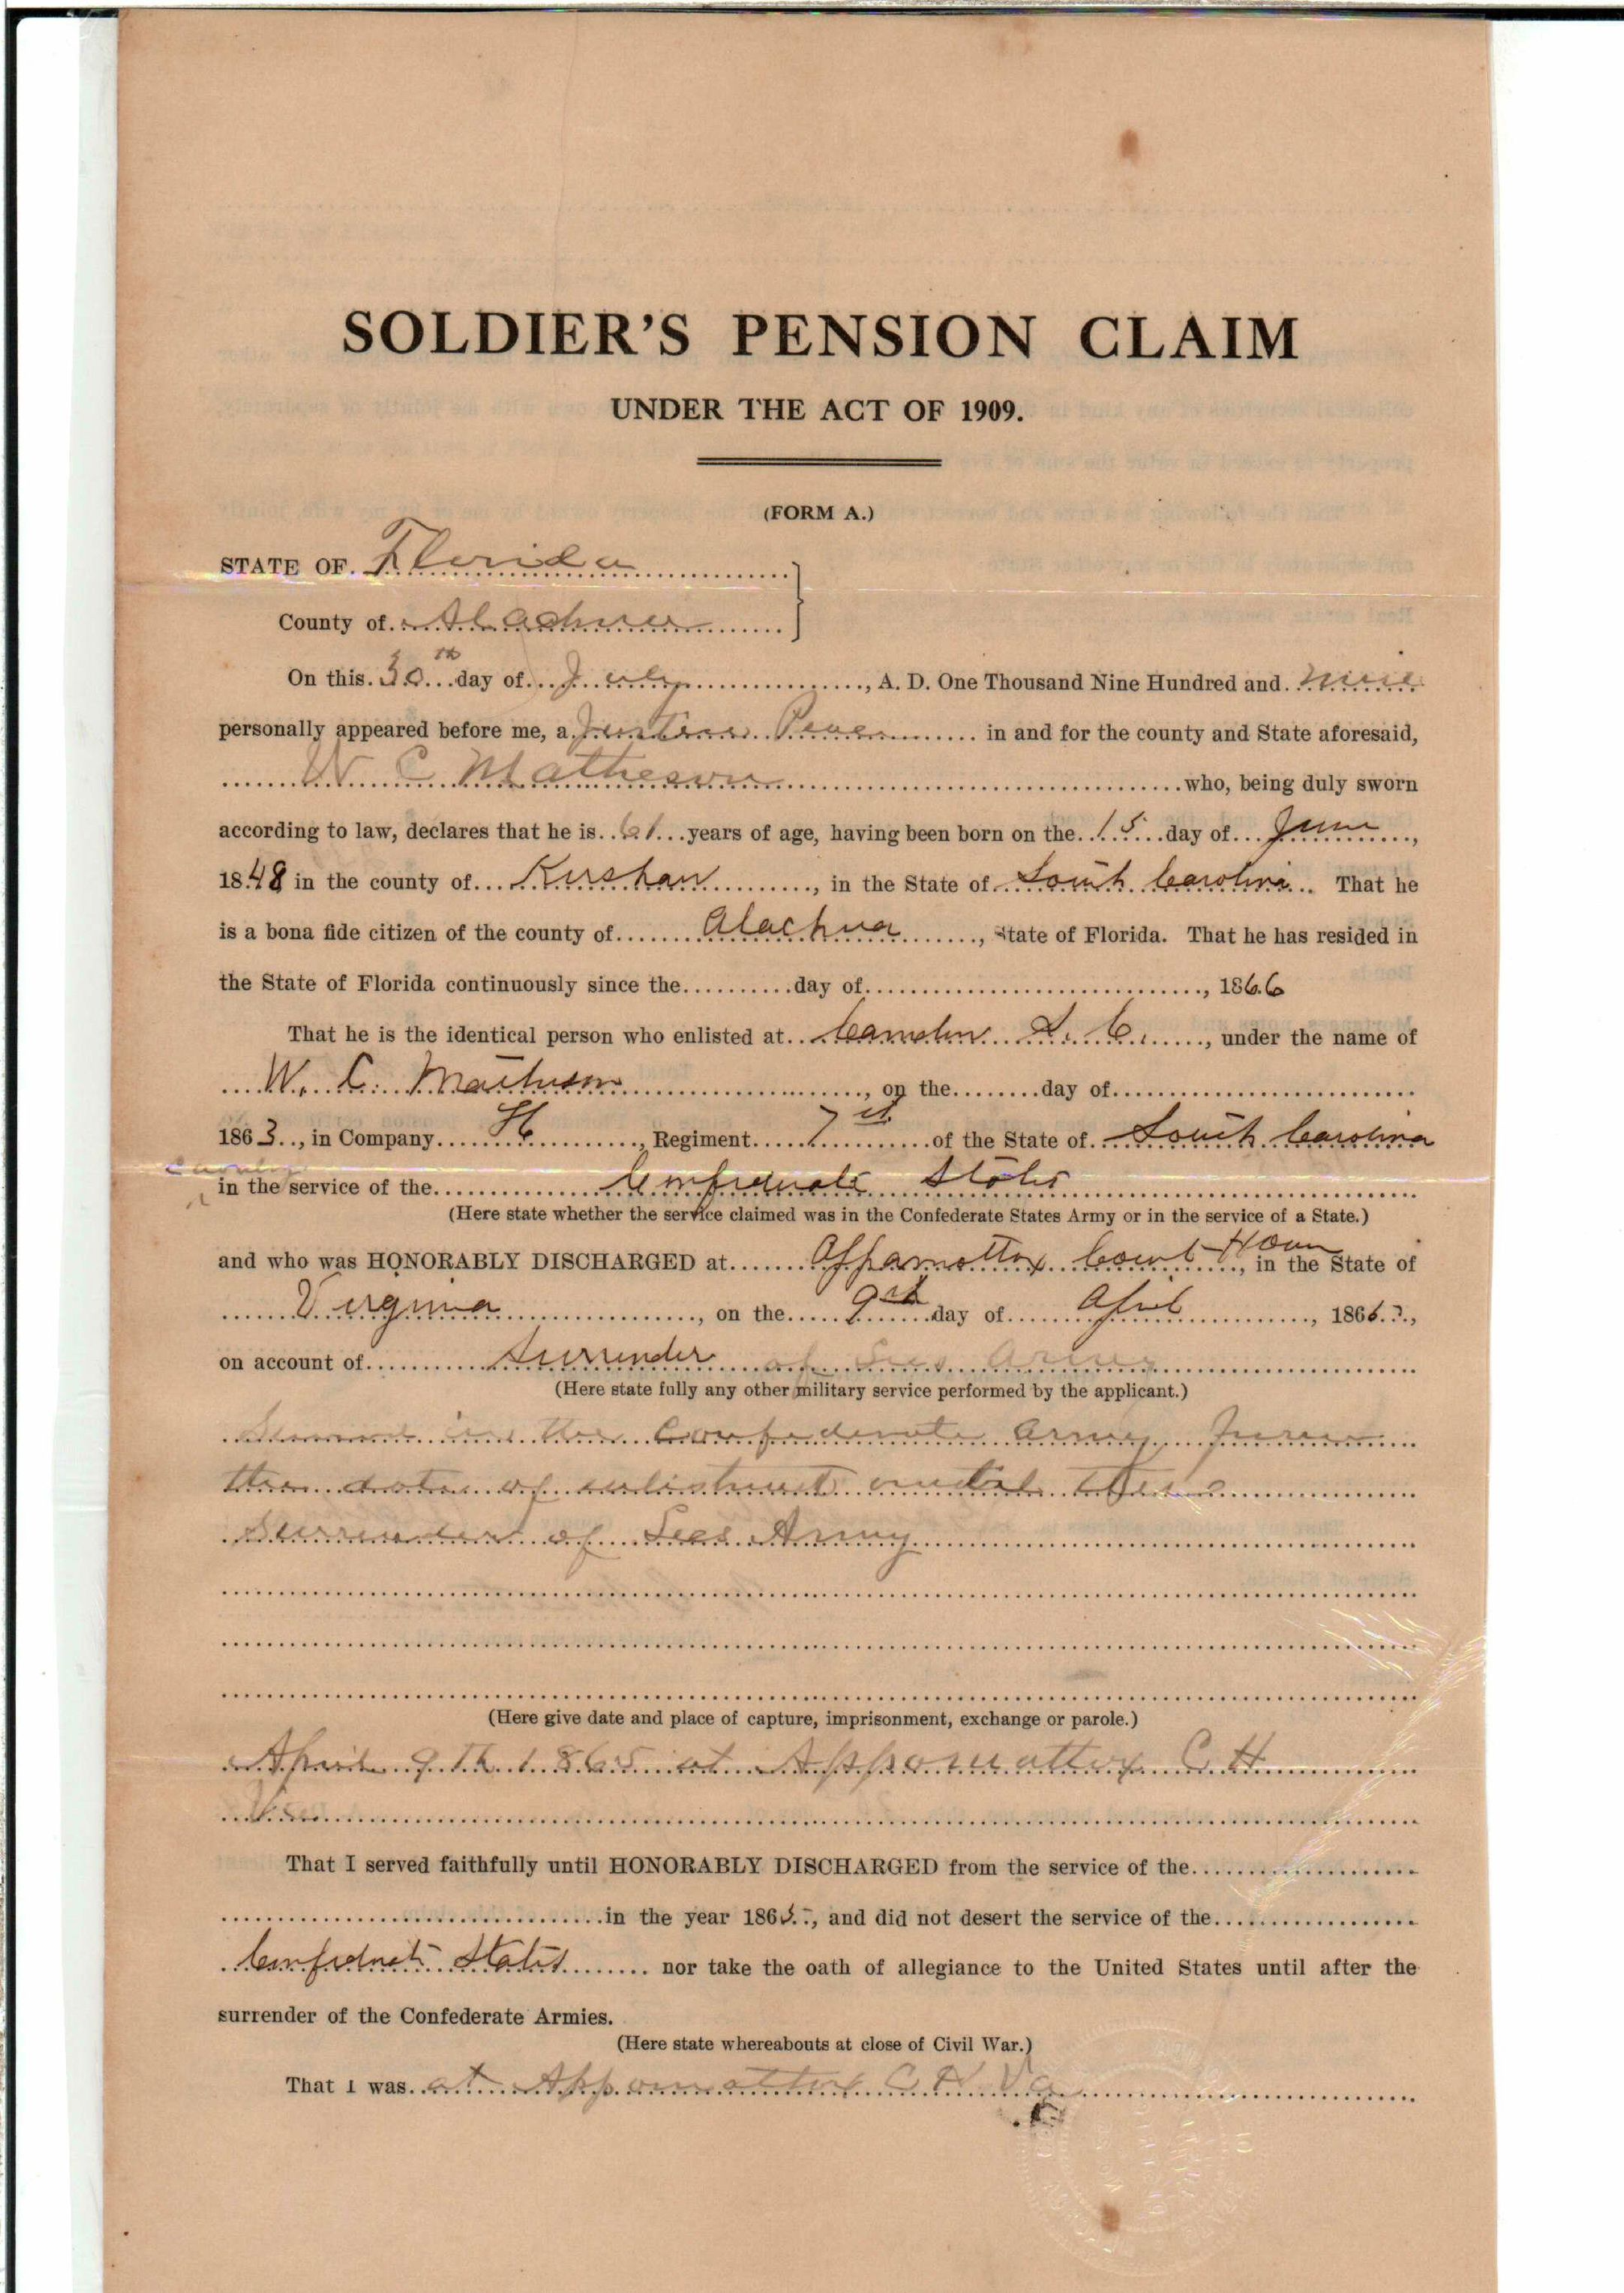 SOLDIER'S PENSION CLAIM
UNDER THE ACT OF 1909.
(FORM A.)
STATE OF Florida
County of Alachua
On this 30th day of July, A. D. One Thousand Nine Hundred and nine
personally appeared before me, a Justice Peace in and for the county and State aforesaid,
W C Matheson who, being duly sworn
according to law, declares that he is 61 years of age, having been born on the 15 day of June,
1848 in the county of Kershaw, in the State of South Carolina. That he
is a bona fide citizen of the county of Alachua, State of Florida. That he has resided in
the State of Florida continuously since the day of , 1866
That he is the identical person who enlisted at Camden S. C., under the name of
W. C. Matheson, on the day of
1863, in Company H, Regiment 7st of the State of South Carolina
Cavalry
in the service of the Confederate States
(Here state whether the service claimed was in the Confederate States Army or in the service of a State.)
and who was HONORABLY DISCHARGED at Appamottox Court House, in the State of
Virginia, on the 9th day of April, 1865,
on account of Surrender of Lees Army
(Here state fully any other military service performed by the applicant.)
Served in the Confederate Army from
the date of enlistment until the
Surrender of Lees Army
(Here give date and place of capture, imprisonment, exchange or parole.)
April 9th 1865 at Appomattox C H
Va
That I served faithfully until HONORABLY DISCHARGED from the service of the
in the year 1865, and did not desert the service of the
Confedrate States nor take the oath of allegiance to the United States until after the
surrender of the Confederate Armies.
(Here state whereabouts at close of Civil War.)
That I was at Appomattox C H Va